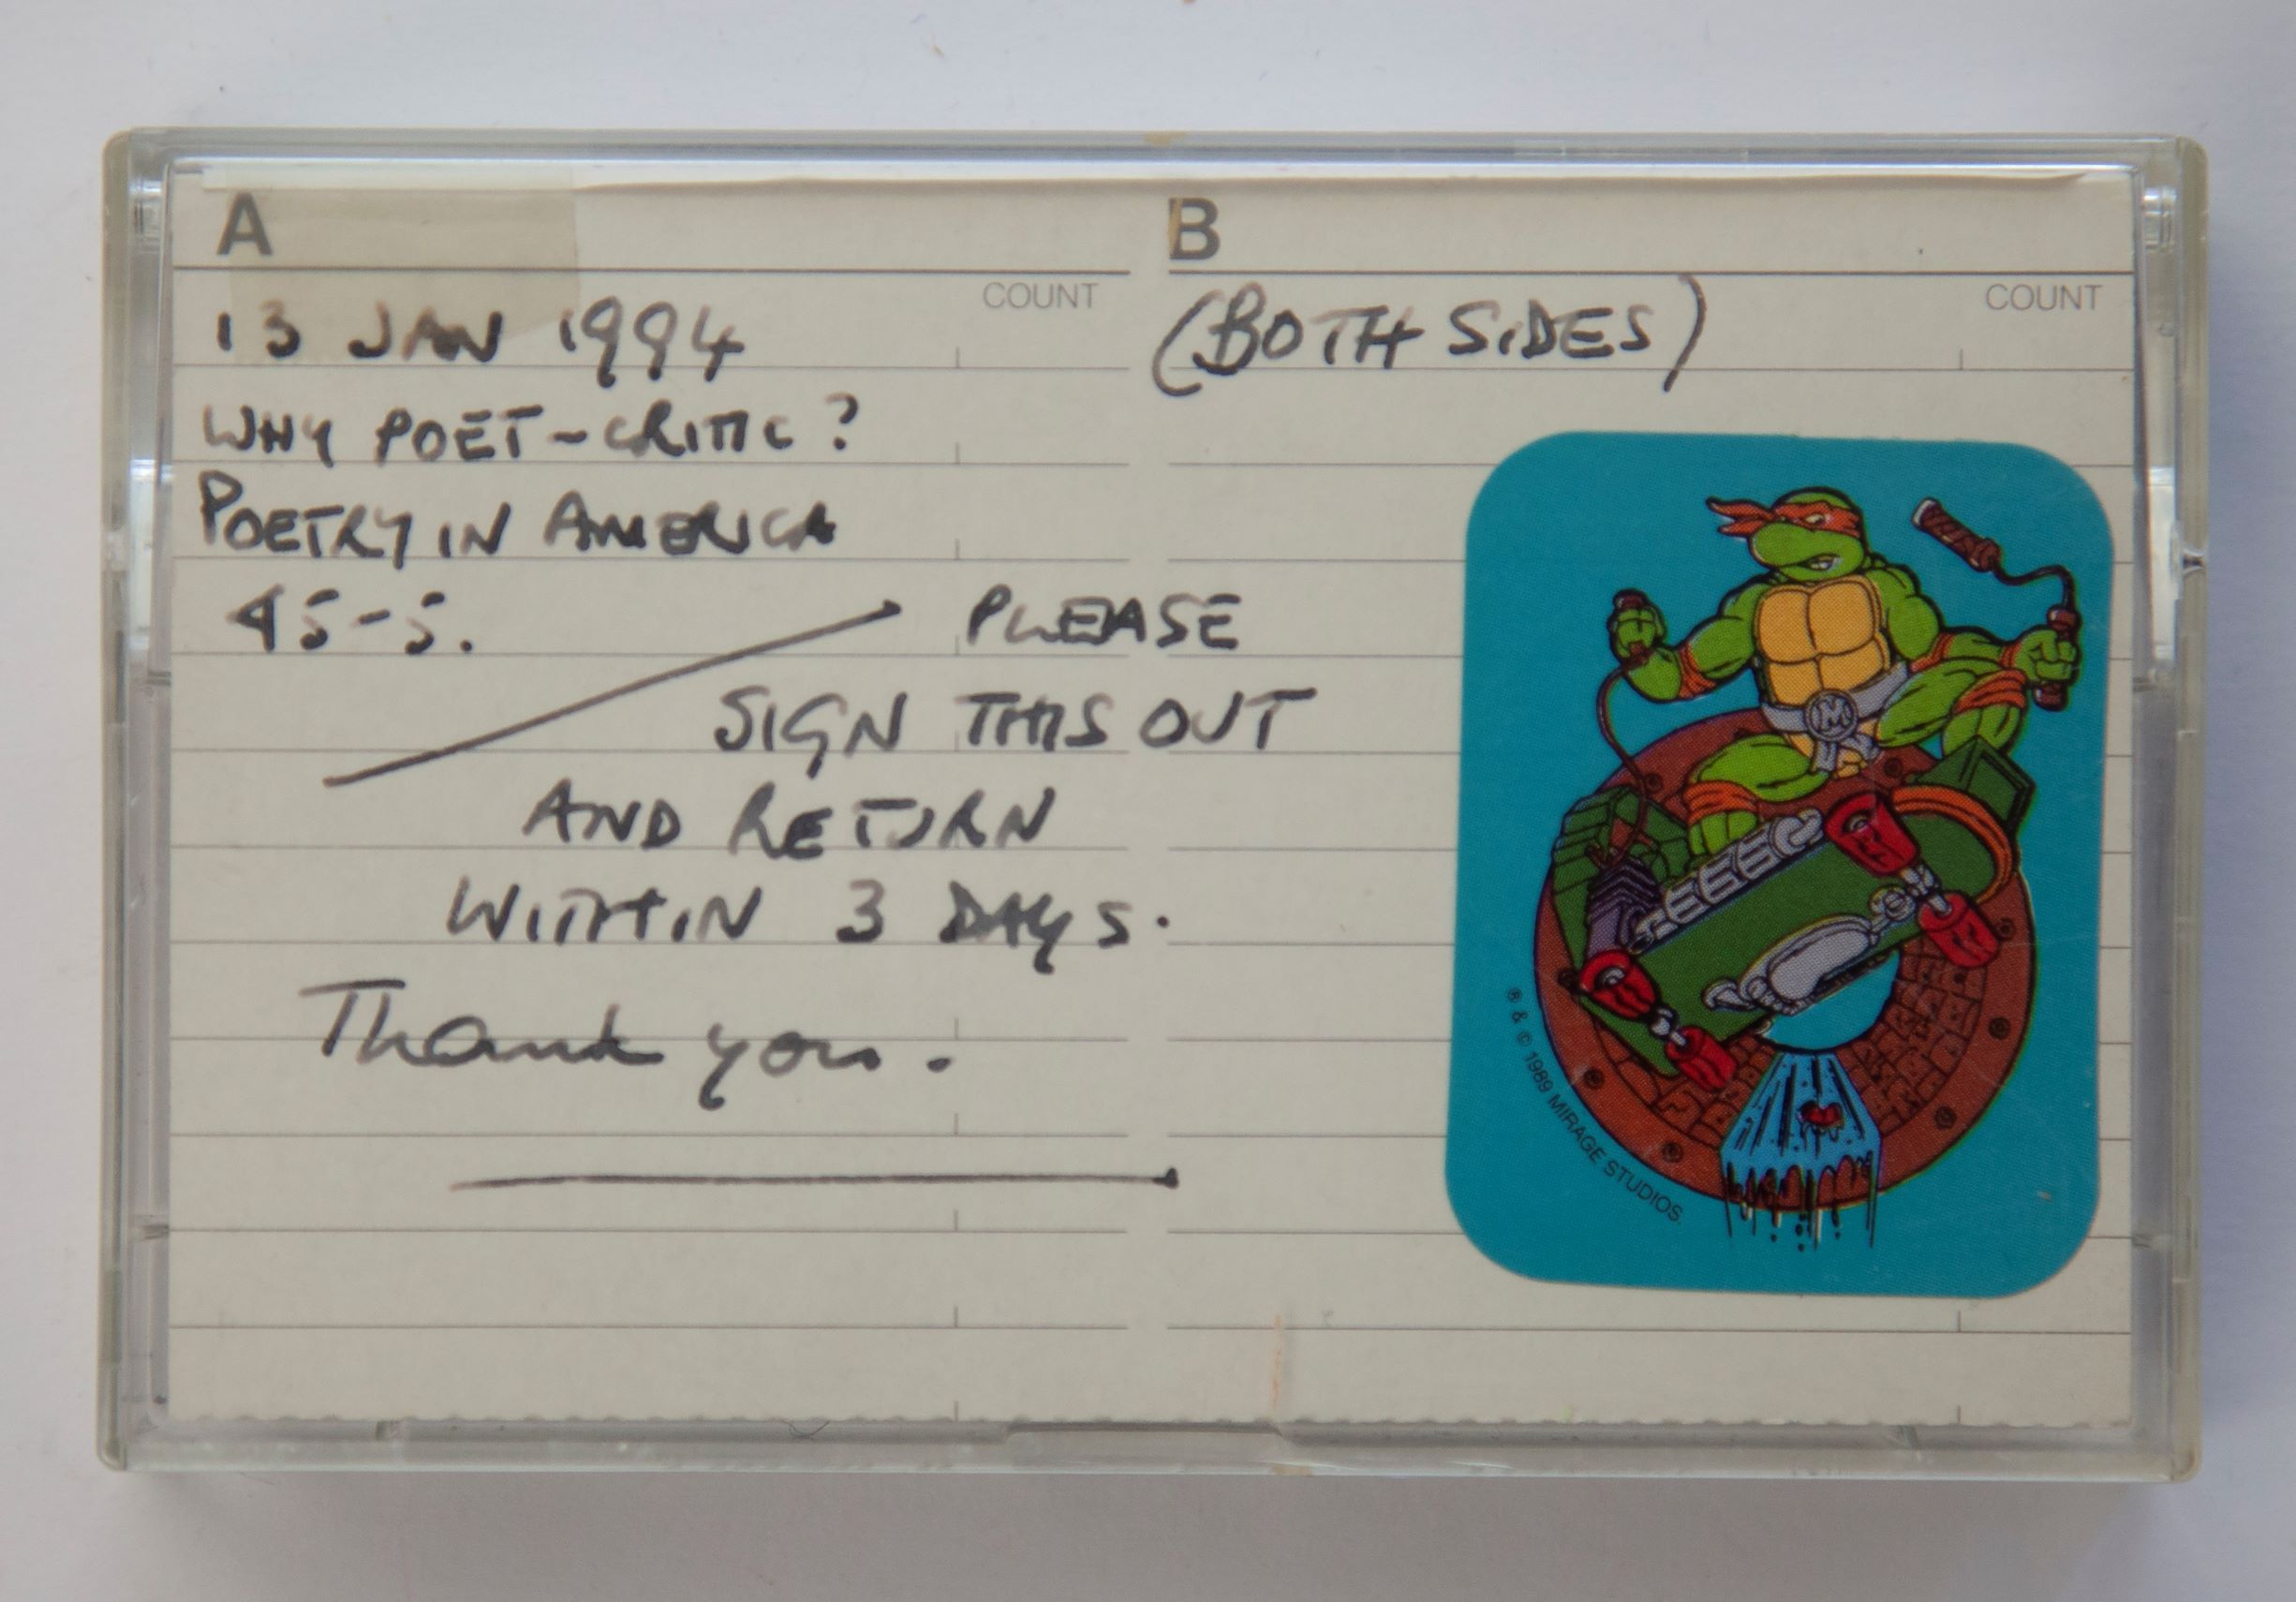 A
COUNT
13 JAN 1994
WHY POET-CRITIC?
POETRY IN AMERICA
45-5.
PLEASE
SIGN THIS OUT
AND RETURN
WITHIN 3 DAYS.
Thank you.
B
COUNT
(BOTH SIDES)
M
® & © 1989 MIRAGE STUDIOS.